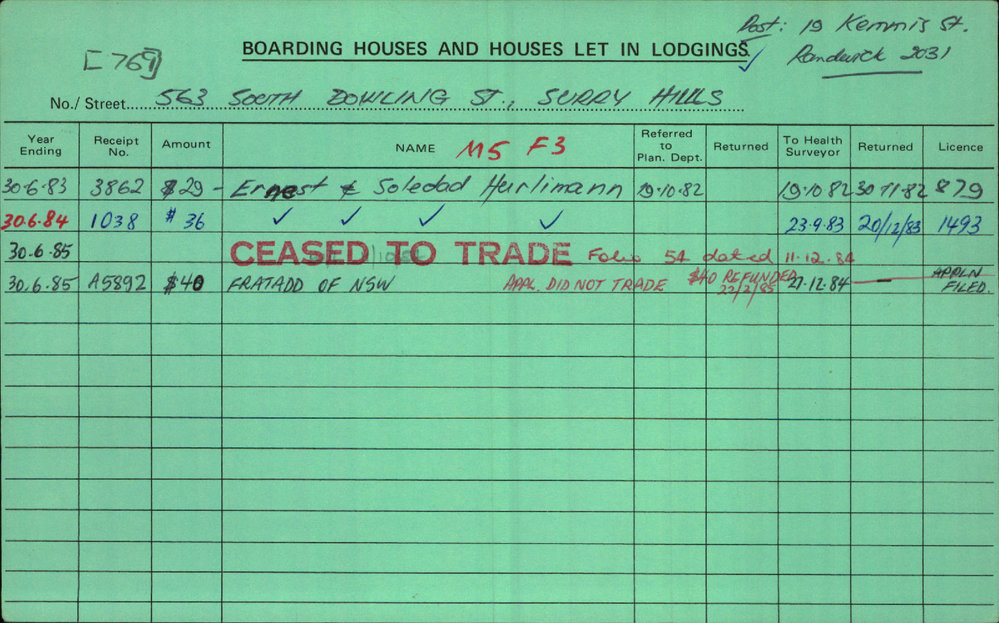 Post: 19 Kemmis St.
Randwick 2031
[769]
BOARDING HOUSES AND HOUSES LET IN LODGINGS ✓
No./ Street 563 SOUTH DOWLING ST., SURRY HILLS
Year Ending Receipt No. Amount NAME M5 F3 Referred to Plan. Dept. Returned To Health Surveyor Returned Licence
30.6.83 3862 $29 - Ernest & Soledad Hurlimann 19.10.82 19.10.82 30.11.82 879
30.6.84 1038 $36 ✓ ✓ ✓ ✓ 23.9.83 20/12/83 1493
30.6.85 CEASED TO TRADE Folio 54 dated 11.12.84
30.6.85 A5892 $40 FRATADD OF NSW APPL. DID NOT TRADE $40 REFUNDED 22/2/85 27.12.84 — APPLN FILED.